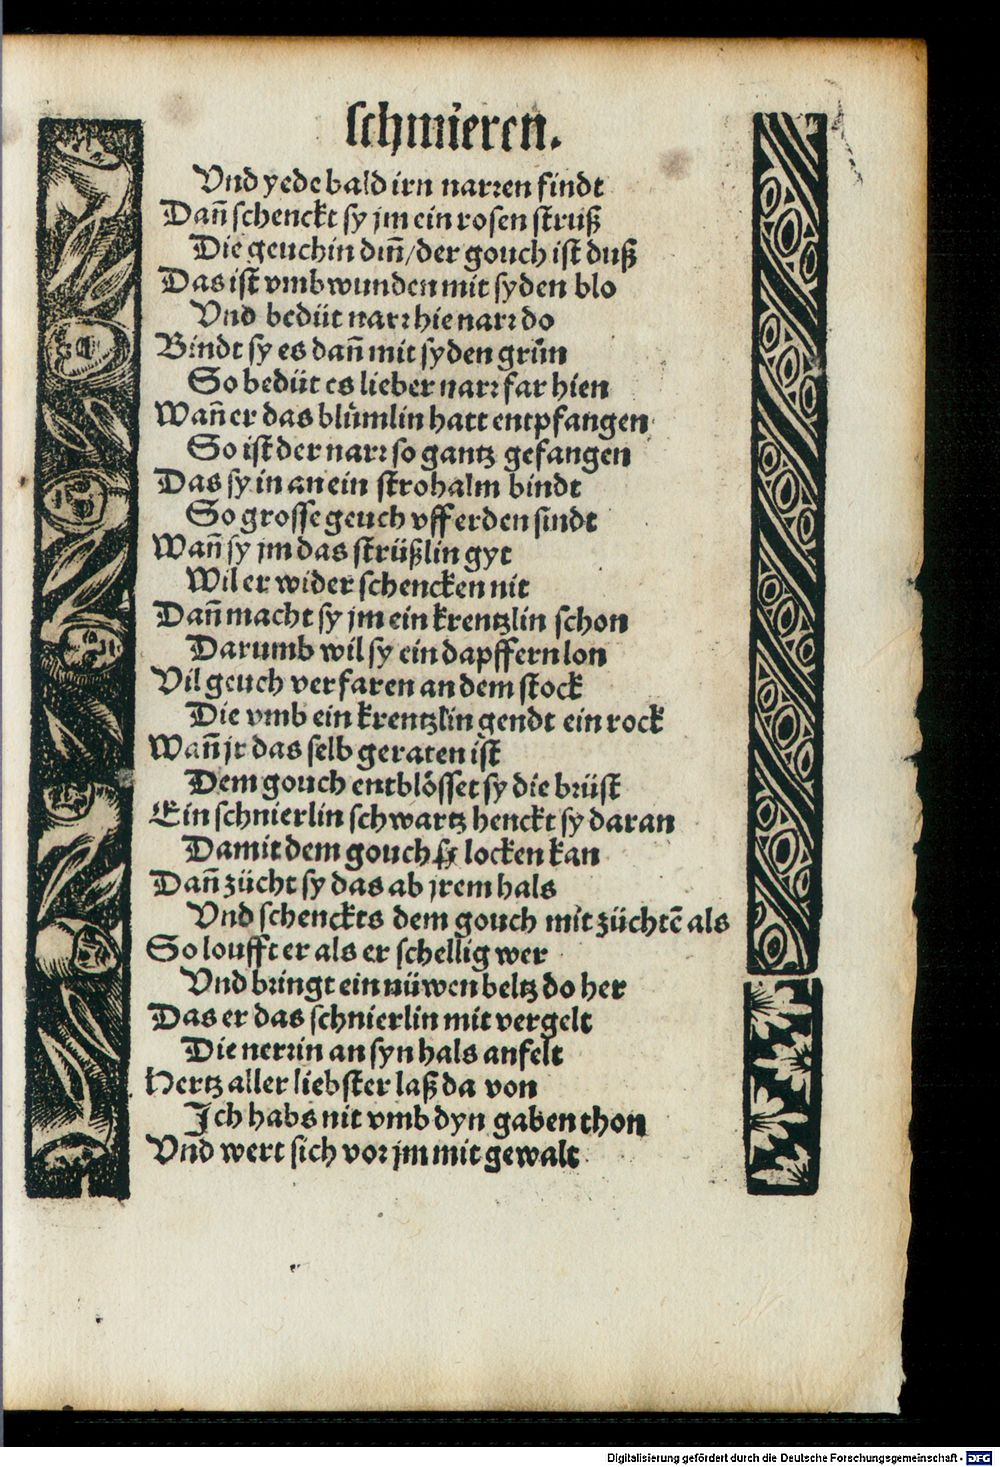 schmieren.
Vnd yede bald irn narren findt
Dañ schenckt sy jm ein rosen struß
Die geuchin diñ/der gouch ist duß
Das ist vmbwunden mit syden blo
Vnd bedüt narr hie narr do
Bindt sy es dañ mit syden grün
So bedüt es lieber narr far hien
Wañ er das blümlin hatt entpfangen
So ist der narr so gantz gefangen
Das sy in an ein strohalm bindt
So grosse geuch vff erden sindt
Wañ sy jm das strüßlin gyt
Wil er wider schencken nit
Dañ macht sy jm ein krentzlin schon
Darumb wil sy ein dapffern lon
Vil geuch verfaren an dem stock
Die vmb ein krentzlin gendt ein rock
Wañ jr das selb geraten ist
Dem gouch entblösset sy die brüst
Ein schnierlin schwartz henckt sy daran
Damit dem gouch sy locken kan
Dañ zücht sy das ab jrem hals
Vnd schenckts dem gouch mit züchtē als
So loufft er als er schellig wer
Vnd bringt ein nüwen beltz do her
Das er das schnierlin mit vergelt
Die nerrin an syn hals anfelt
Hertz aller liebster laß da von
Ich habs nit vmb dyn gaben thon
Vnd wert sich vor jm mit gewalt
Digitalisierung gefördert durch die Deutsche Forschungsgemeinschaft - DFG